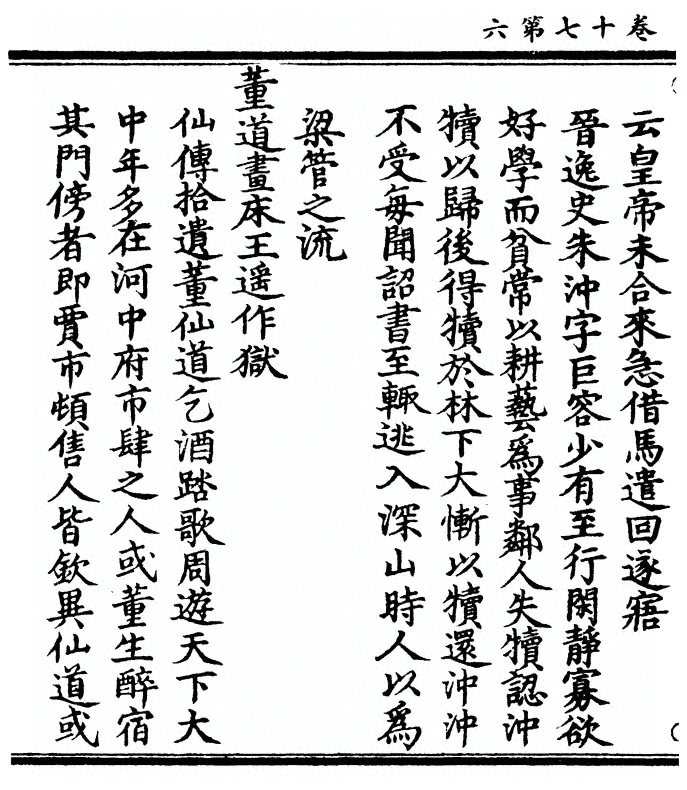 六第七十卷
云皇帝未合來急借馬遣回逐寤
晉逸史朱沖字巨容少有至行閑靜寡欲
好學而貧常以耕藝爲事鄰人失犢認沖
犢以歸後得犢於林下大慚以犢還沖沖
不受每聞詔書至輒逃入深山時人以爲
梁管之流
董道畫床王遥作獄
仙傳拾遺董仙道乞酒踏歌周遊天下大
中年多在河中府市肆之人或董生醉宿
其門傍者即賈市頓售人皆欽異仙道或